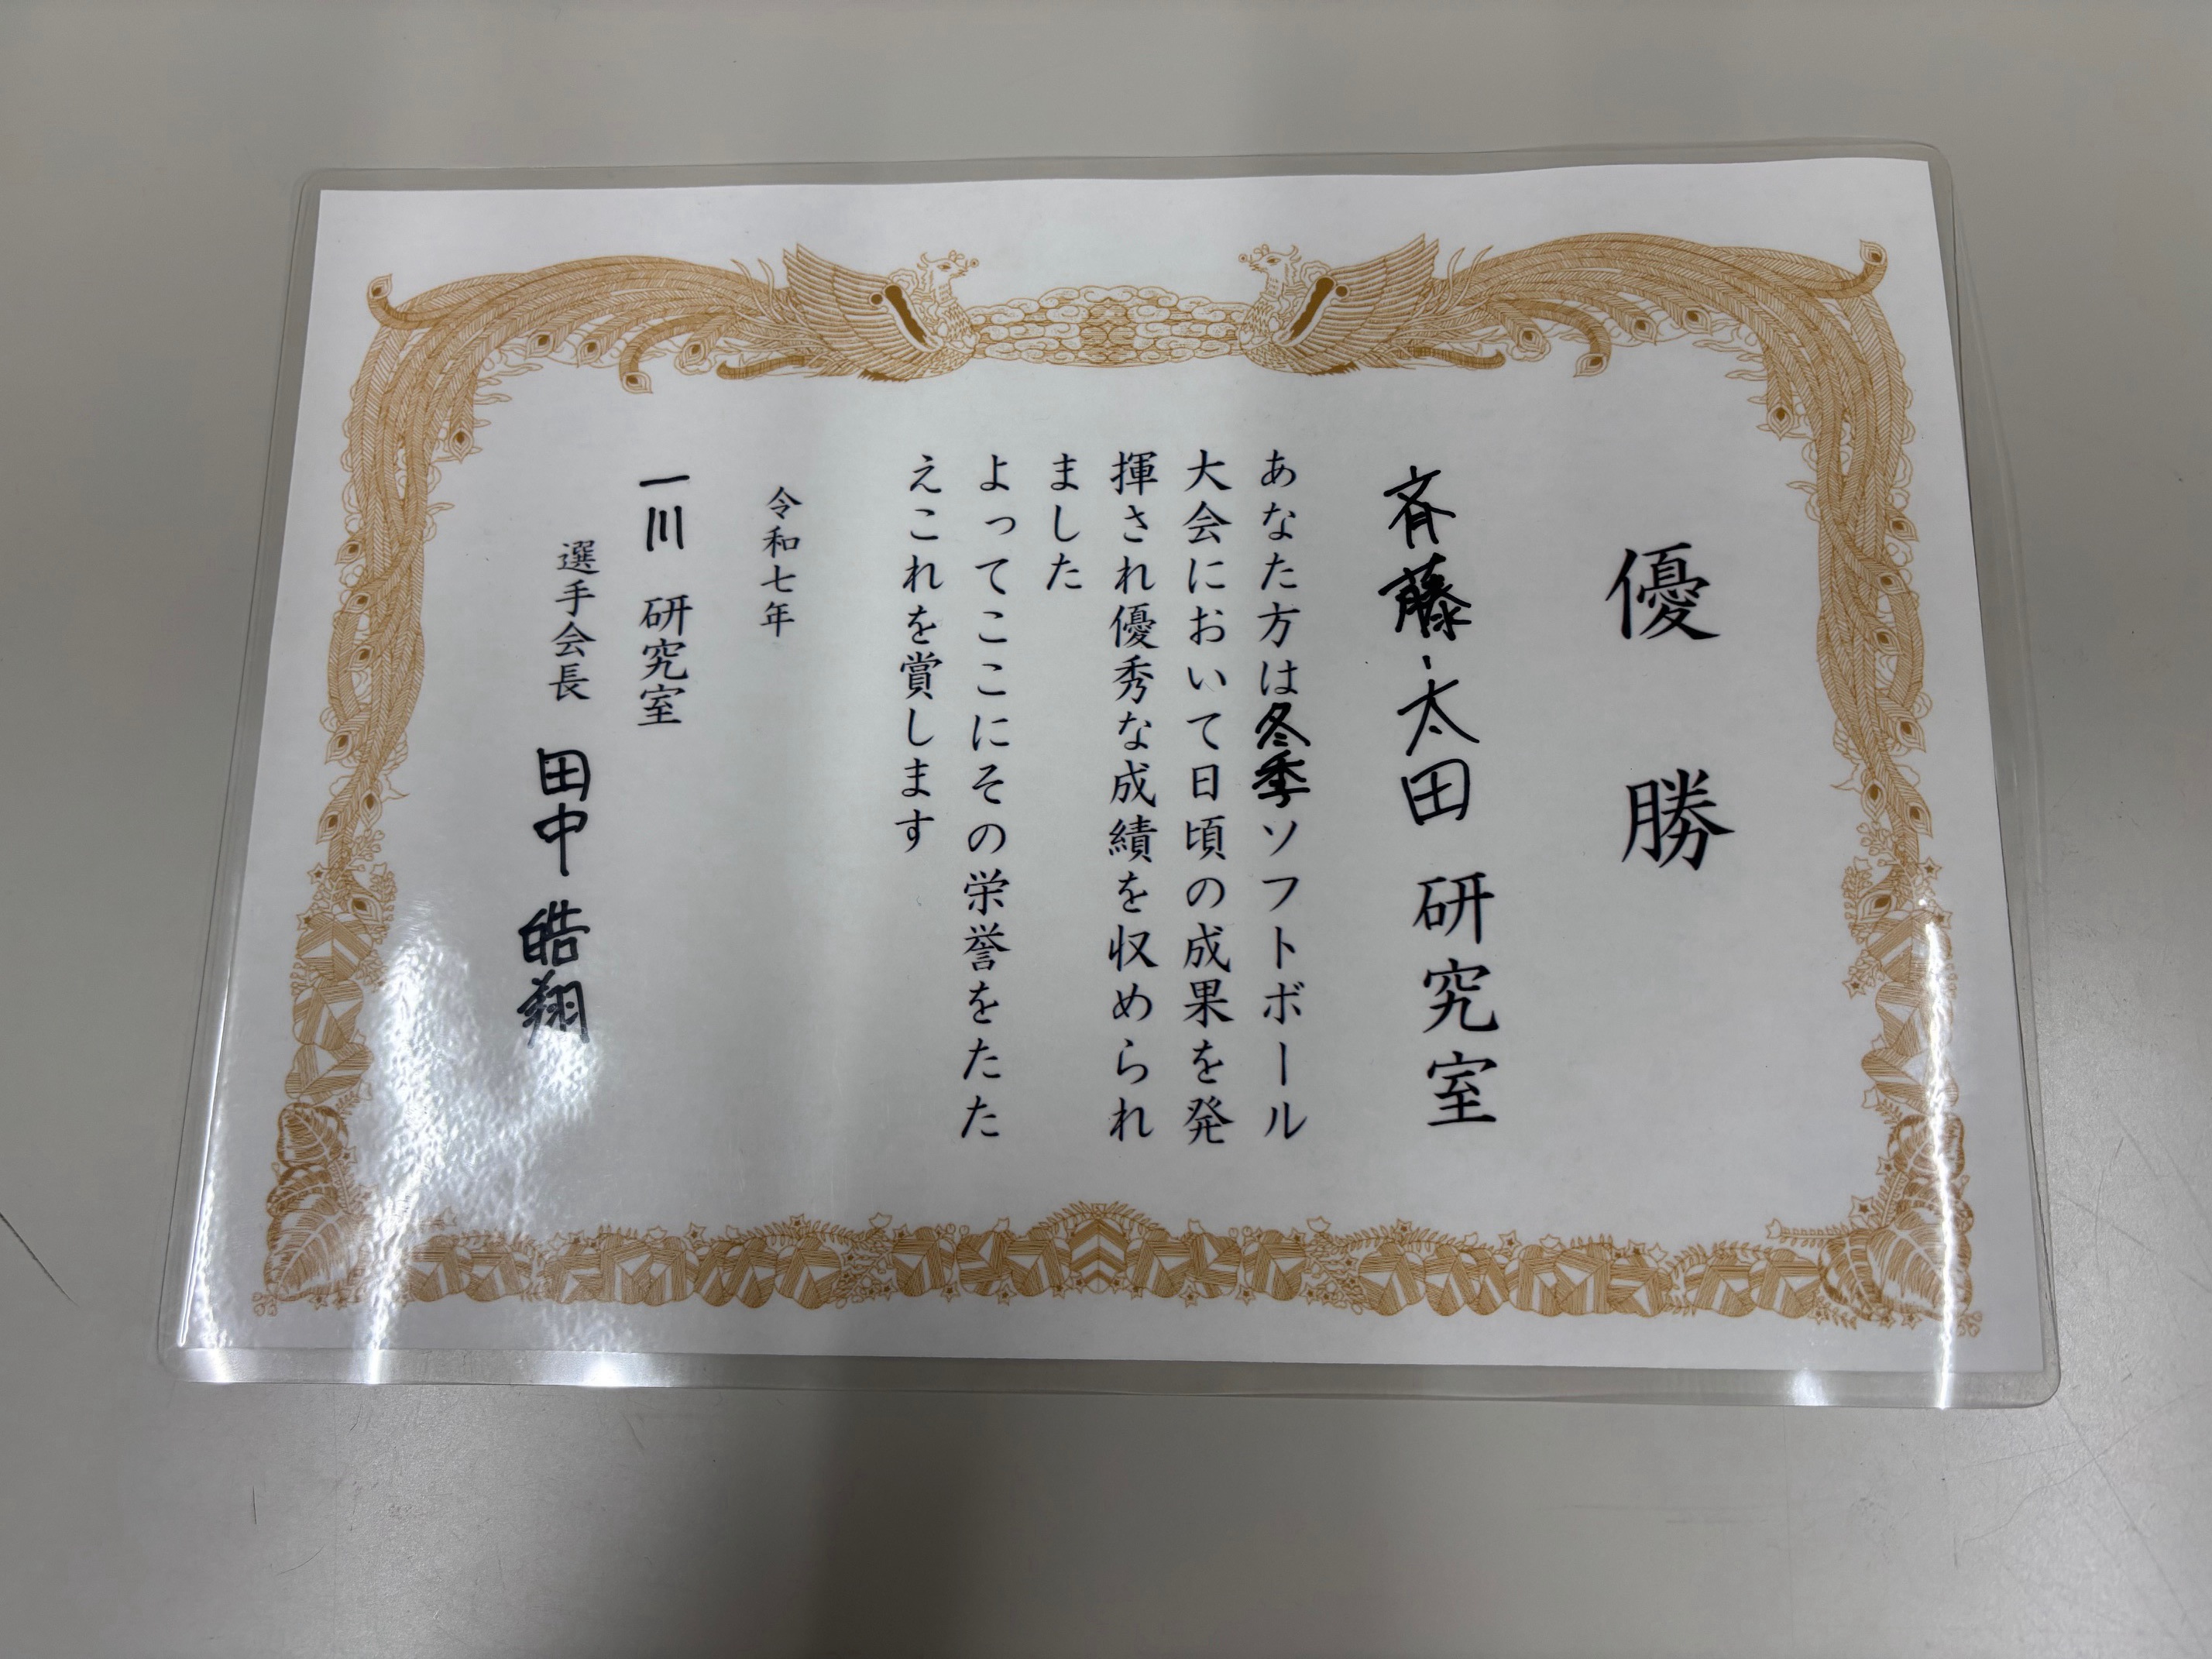 優勝
斉藤・太田研究室
あなた方は冬季ソフトボール
大会において日頃の成果を発
揮され優秀な成績を収められ
ました
よってここにその栄誉をたた
えこれを賞します
令和七年
一川研究室
選手会長 田中 皓翔